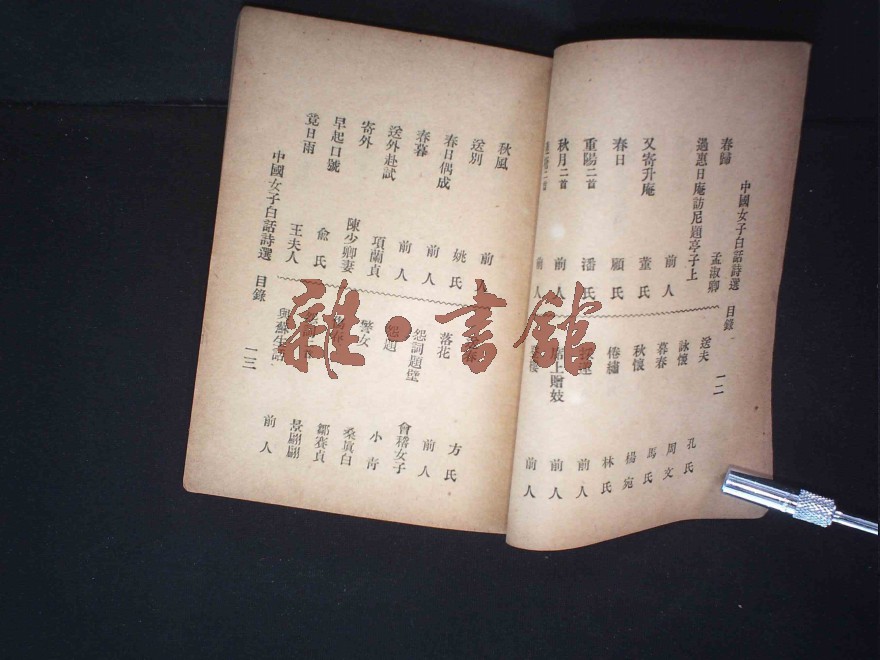 中國女子白話詩選 目錄 一二
春歸 孟淑卿
過惠日庵訪尼題亭子上
前人
又寄升庵 董氏
春日 顧氏
重陽二首 潘氏
秋月二首 前人
二首 前人
送夫 孔氏
詠懷 周文
暮春 馬氏
秋懷 楊宛
倦繡 林氏
前人
上贈妓 前人
前人
秋風 前人
送別 姚氏
春日偶成 前人
春暮 前人
送外赴試 項蘭貞
寄外 陳少卿妻
早起口號 俞氏
賞日雨 王夫人
方氏
落花 前人
怨詞題壁 會稽女子
題 小青
警女 桑貞白
鄒賽貞
景翩翩
與蘇生話 前人
中國女子白話詩選 目錄 一三
雜·書館